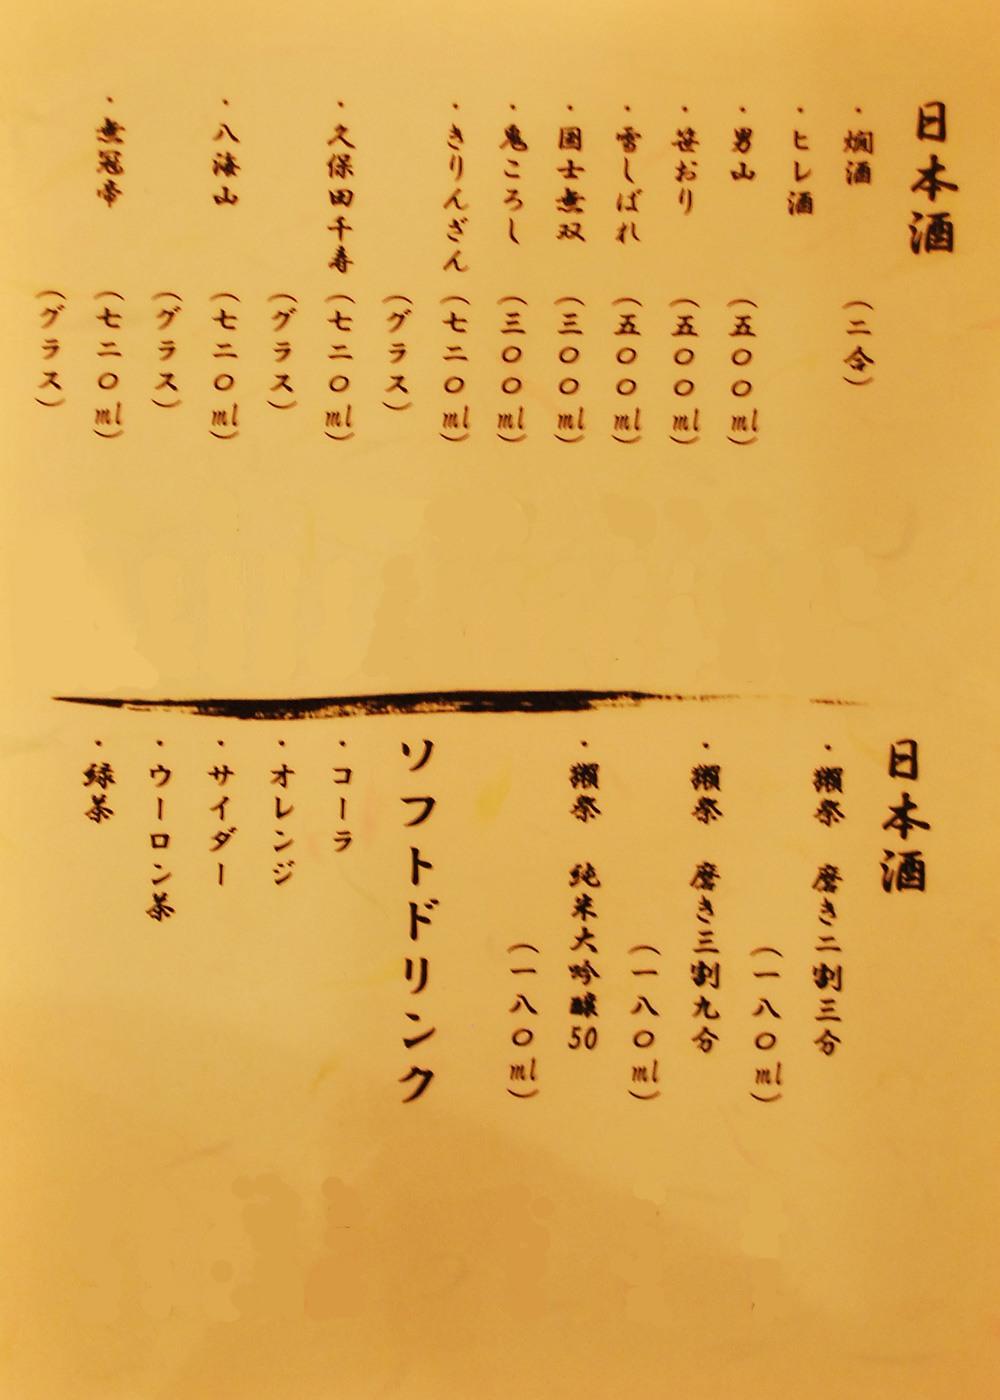 日本酒
・燗酒 （二合）
・ヒレ酒
・男山 （五〇〇ml）
・笹おり （五〇〇ml）
・雪しばれ （五〇〇ml）
・国士無双 （三〇〇ml）
・鬼ころし （三〇〇ml）
・きりんざん （七二〇ml）
（グラス）
・久保田千寿 （七二〇ml）
（グラス）
・八海山 （七二〇ml）
（グラス）
・無冠帝 （七二〇ml）
（グラス）
日本酒
・獺祭 磨き二割三分
（一八〇ml）
・獺祭 磨き三割九分
（一八〇ml）
・獺祭 純米大吟醸50
（一八〇ml）
ソフトドリンク
・コーラ
・オレンジ
・サイダー
・ウーロン茶
・緑茶